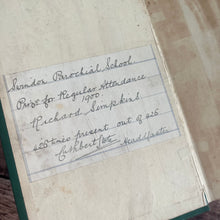 Swindon Parochial School.
Prize for Regular Attendance
1900.
Richard Simpkins
425 times present out of 425
Headmaster